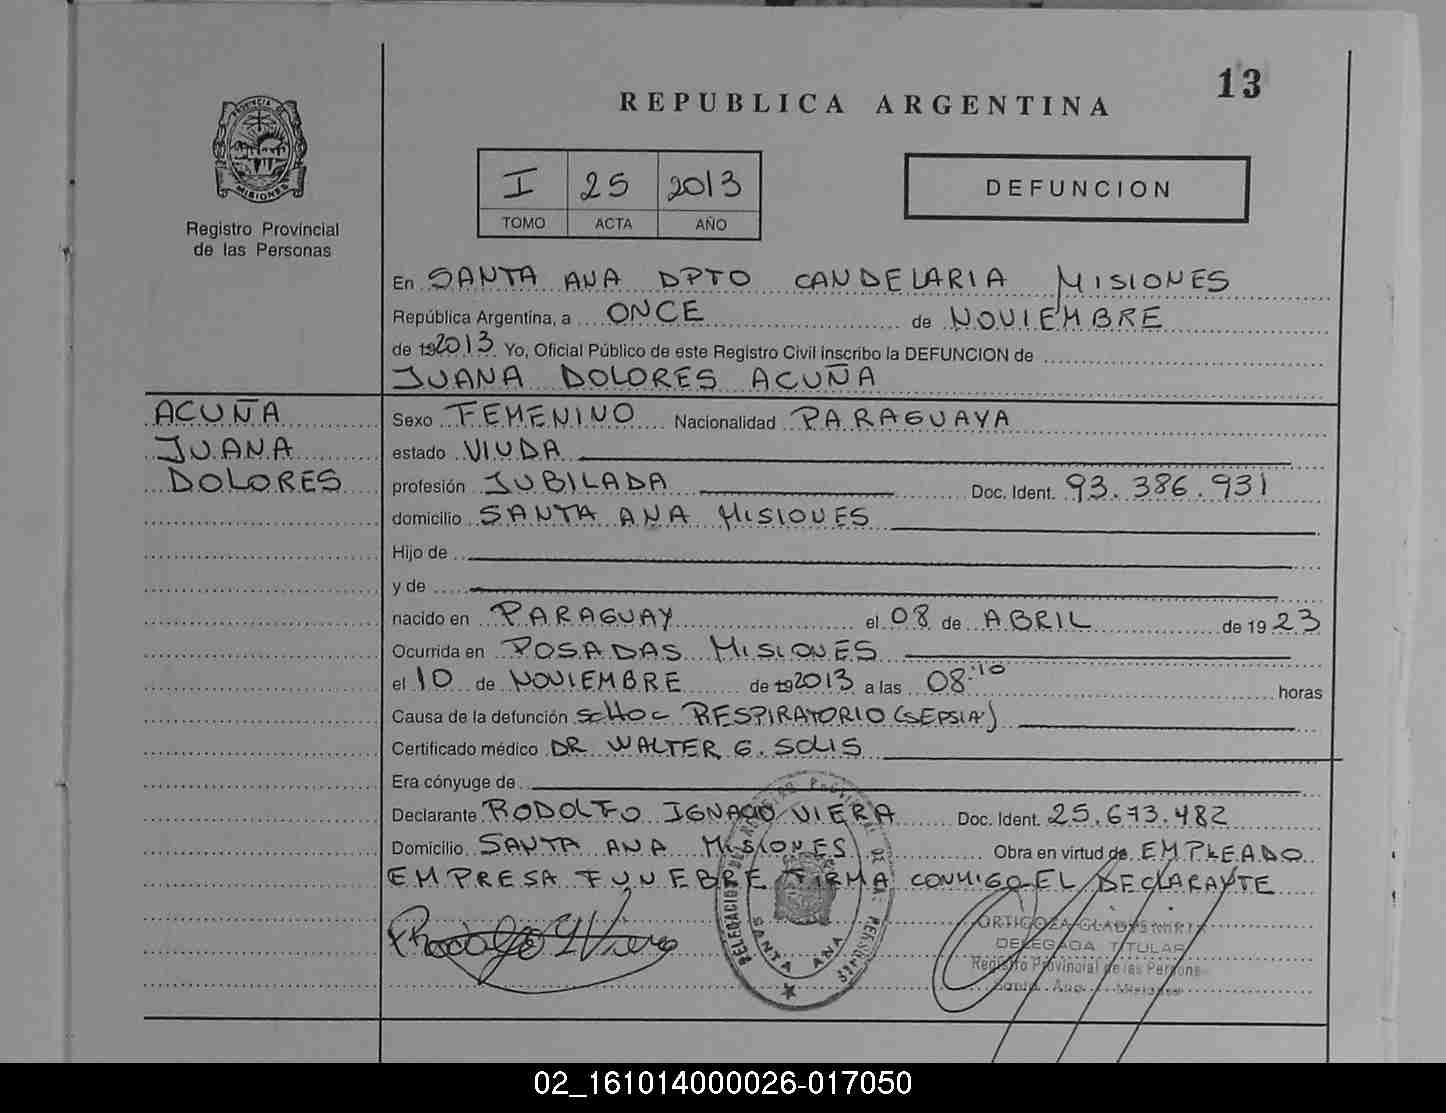 13
REPUBLICA ARGENTINA
PROVINCIA DE
MISIONES
Registro Provincial
de las Personas
I 25 2013
TOMO ACTA AÑO
DEFUNCION
En SANTA ANA DPTO CANDELARIA MISIONES
República Argentina, a ONCE de NOVIEMBRE
de 192013 Yo, Oficial Público de este Registro Civil inscribo la DEFUNCION de
JUANA DOLORES ACUÑA
ACUÑA
JUANA
DOLORES
Sexo FEMENINO Nacionalidad PARAGUAYA
estado VIUDA
profesión JUBILADA Doc. Ident. 93.386.931
domicilio SANTA ANA MISIONES
Hijo de
y de
nacido en PARAGUAY el 08 de ABRIL de 19 23
Ocurrida en POSADAS MISIONES
el 10 de NOVIEMBRE de 192013 a las 08:10 horas
Causa de la defunción SCHOC RESPIRATORIO (SEPSIA)
Certificado médico DR WALTER G. SOLIS
Era cónyuge de
Declarante RODOLFO IGNACIO VIERA Doc. Ident. 25.673.482
Domicilio SANTA ANA MISIONES Obra en virtud de EMPLEADO
EMPRESA FUNEBRE FIRMA CONMIGO EL DECLARANTE
Rodolfo I Viera
DELEGACION DEL REGISTRO PROVINCIAL DE LAS PERSONAS
SANTA ANA
ORTIGOZA GLADYS
DELEGADA TITULAR
Registro Provincial de las Persona
Santa Ana Misiones
02_161014000026-017050